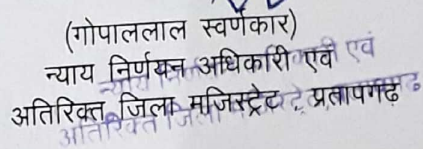 (गोपाललाल स्वर्णकार)
न्याय निर्णयन अधिकारी एवं
अतिरिक्त जिला मजिस्ट्रेट, प्रतापगढ़